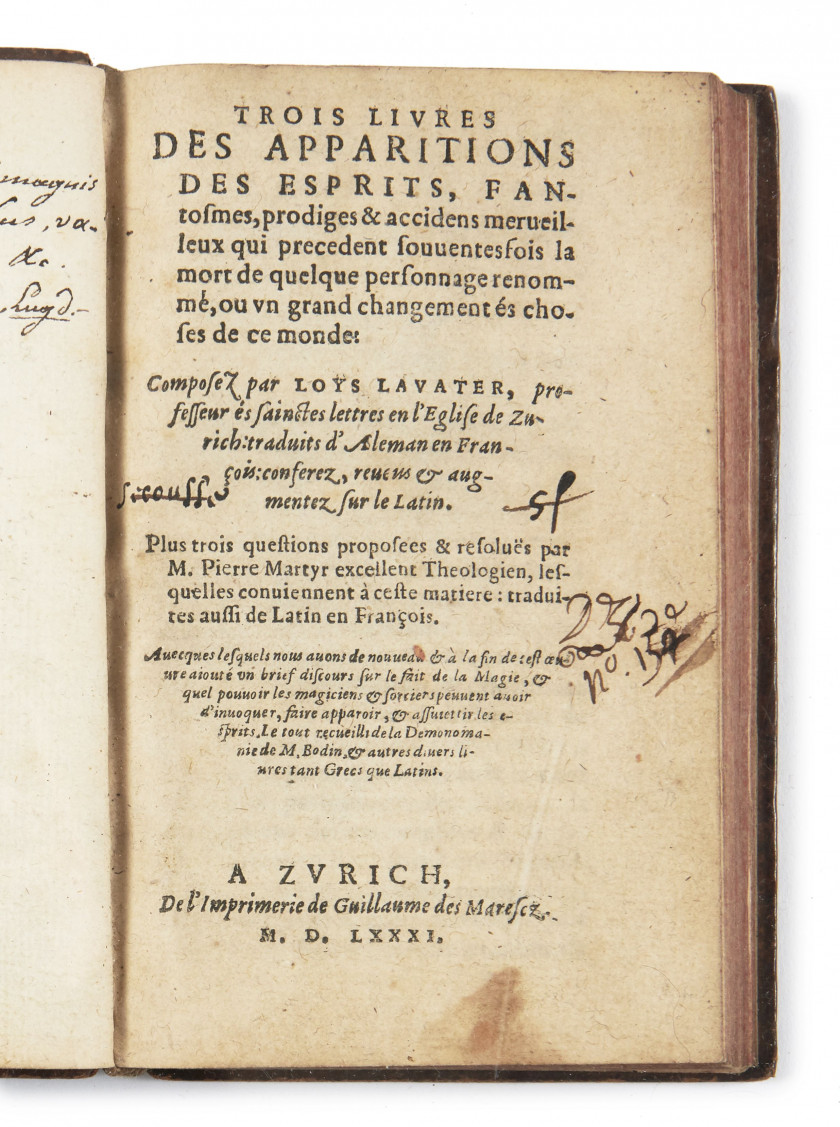 magnis
va-
&c.
Lugd.
TROIS LIVRES
DES APPARITIONS
DES ESPRITS, FAN-
toſmes, prodiges & accidens merueil-
leux qui precedent ſouuentesfois la
mort de quelque perſonnage renom-
mé, ou vn grand changement és cho-
ſes de ce monde:
Compoſez par LOYS LAVATER, pro-
feſſeur és ſainctes lettres en l'Egliſe de Zu-
rich: traduits d'Aleman en Fran-
çois: conferez, reueus & aug-
mentez ſur le Latin.
secousse
Plus trois queſtions propoſees & reſoluës par
M. Pierre Martyr excellent Theologien, leſ-
quelles conuiennent à ceſte matiere: tradui-
tes auſſi de Latin en François.
no. 
Auecques leſquels nous auons de nouueau & à la fin de ceſt œu-
ure aiouté vn brief diſcours ſur le fait de la Magie, &
quel pouuoir les magiciens & ſorciers peuuent auoir
d'inuoquer, faire apparoir, & aſſuiettir les e-
ſprits. Le tout recueilli de la Demonoma-
nie de M. Bodin, & autres diuers li-
ures tant Grecs que Latins.
A ZVRICH,
De l'Imprimerie de Guillaume des Mareſcz.
M. D. LXXXI.